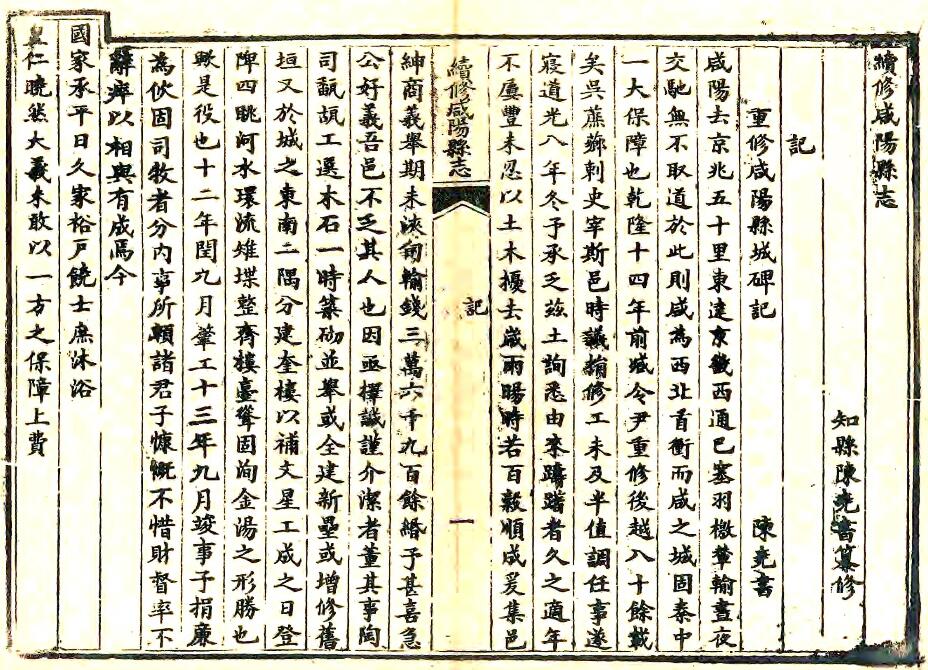 續修咸陽縣志
知縣陳堯書纂修
記
重修咸陽縣城碑記
陳堯書
咸陽去京兆五十里東達京畿西通巴塞羽檄輦輸晝夜
交馳無不取道於此則咸為西北首衝而咸之城固秦中
一大保障也乾隆十四年前臧令尹重修後越八十餘載
矣吳蔗薌刺史宰斯邑時議捐修工未及半值調任事遂
寢道光八年冬予承乏茲土詢悉由來躊躇者久之適年
不屢豐未忍以土木擾去歲雨暘時若百穀順成爰集邑
續修咸陽縣志
記
一
紳商義舉期未浹旬輸錢三萬六千九百餘緡予甚喜急
公好義吾邑不乏其人也因亟擇誠謹介潔者董其事陶
司甎瓬工選木石一時築砌並舉或全建新壘或增修舊
垣又於城之東南二隅分建奎樓以補文星工成之日登
陴四眺河水環流雉堞整齊樓臺鞏固洵金湯之形勝也
歟是役也十二年閏九月肇工十三年九月竣事予捐廉
為伙固司牧者分內事所頼諸君子慷慨不惜財督率不
辭瘁以相與有成焉今
國家承平日久家裕戶饒士庶沐浴
皇仁曉然大義未敢以一方之保障上費